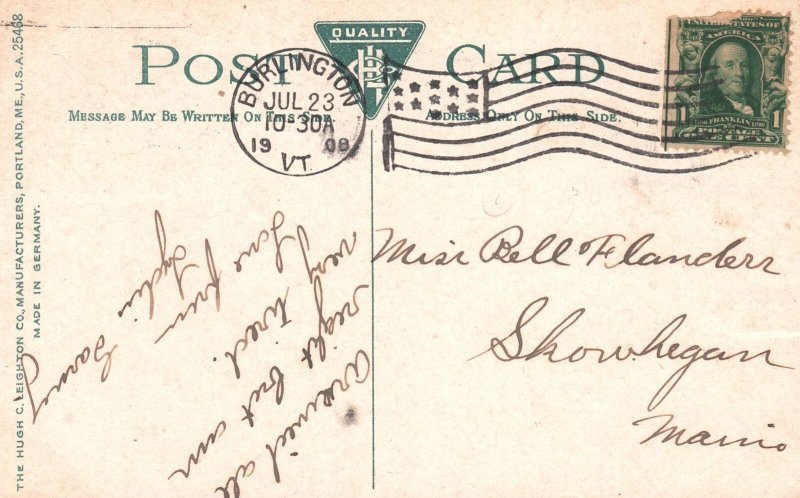 QUALITY
POST CARD
MESSAGE MAY BE WRITTEN ON THIS SIDE.
ADDRESS ONLY ON THIS SIDE.
BURLINGTON
JUL 23
10 30A
1908
VT.
UNITED STATES OF
FRANKLIN
POSTAGE
1
Miss Bell Flanders
Skowhegan
Maine
Arrived all
right but am
very tired.
Love from
Lydia
THE HUGH C. LEIGHTON CO., MANUFACTURERS, PORTLAND, ME., U.S.A. 25468
MADE IN GERMANY.